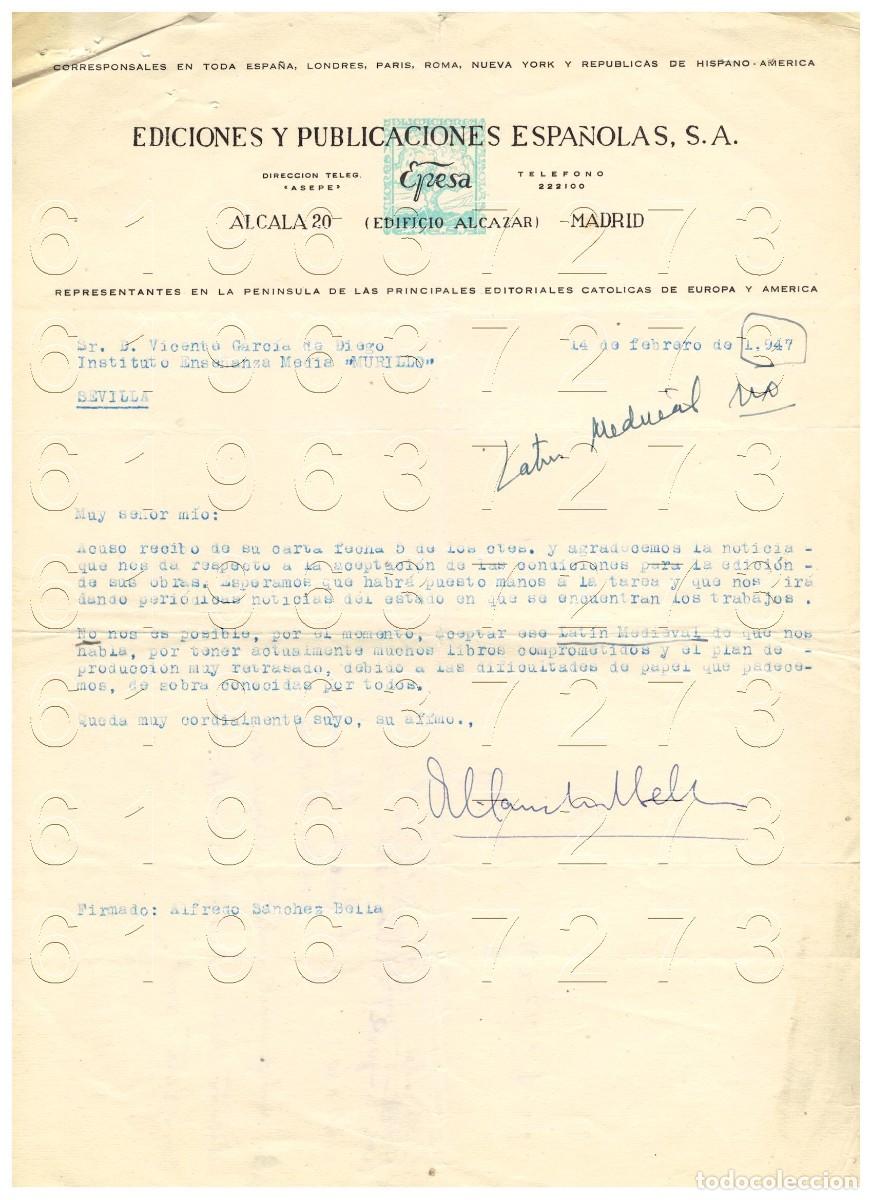 CORRESPONSALES EN TODA ESPAÑA, LONDRES, PARIS, ROMA, NUEVA YORK Y REPUBLICAS DE HISPANO-AMERICA
EDICIONES Y PUBLICACIONES ESPAÑOLAS, S.A.
DIRECCION TELEG.
«ASEPE»
Epesa
TELEFONO
222100
ALCALA 20 (EDIFICIO ALCAZAR) - MADRID
REPRESENTANTES EN LA PENINSULA DE LAS PRINCIPALES EDITORIALES CATOLICAS DE EUROPA Y AMERICA
Sr. D. Vicente García de Diego
14 de febrero de 1.947
Instituto Enseñanza Media "MURILLO"
SEVILLA
Latin Medieval no
Muy señor mío:
Acuso recibo de su carta fecha 5 de los ctes. y agradecemos la noticia -
que nos da respecto a la aceptación de las condiciones para la edición -
de sus obras. Esperamos que habrá puesto manos a la tarea y que nos irá
dando periódicas noticias del estado en que se encuentran los trabajos.
No nos es posible, por el momento, aceptar ese Latín Medieval de que nos
habla, por tener actualmente muchos libros comprometidos y el plan de -
producción muy retrasado, debido a las dificultades de papel que padece-
mos, de sobra conocidas por todos.
Queda muy cordialmente suyo, su affmo.,
Firmado: Alfredo Sánchez Bella
619637273
todocoleccion